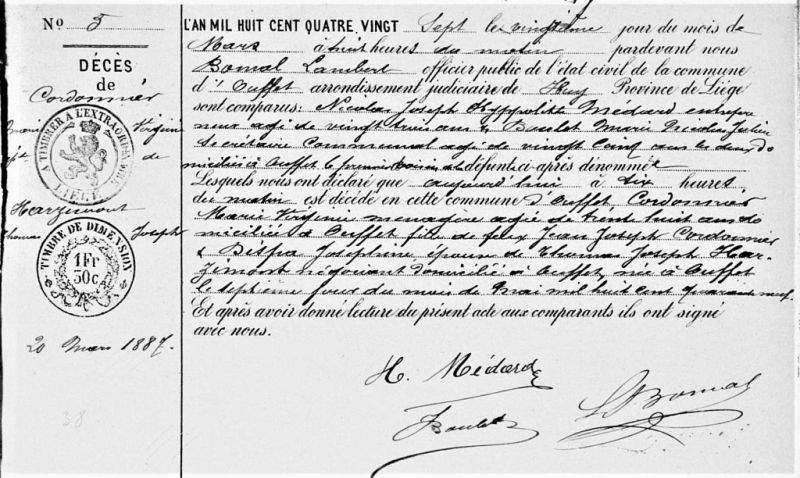 No 5
DÉCÈS
de
Cordonnier
Marie Virginie
épt. de
Harzimont
Thomas Joseph
20 Mars 1887.
38
A TIMBRER A L'EXTRAORDINAIRE
LIEGE
TIMBRE DE DIMENSION
1 Fr
30 c.
L'AN MIL HUIT CENT QUATRE VINGT Sept le vingtième jour du mois de
Mars à huit heures du matin pardevant nous
Bomal Lambert officier public de l'état civil de la commune
d' Ouffet arrondissement judiciaire de Huy Province de Liége
sont comparus: Nicolas Joseph Hyppolite Médard entrepre
neur agé de vingt trois ans & Boulet Marie Nicolas Julien
Secrétaire Communal agé de vingt cinq ans les deux do
micilié à Ouffet le premier voisin de la défunt ci-après dénommé e
Lesquels nous ont déclaré que aujourd'hui à six heures
du matin est décédé en cette commune d'Ouffet Cordonnier
Marie Virginie menagère agée de trente huit ans do
miciliée à Ouffet fille de feux Jean Joseph Cordonnier
& Joséphine, épouse de Thomas Joseph Har-
zimont négociant domicilié à Ouffet, née à Ouffet
le septième jour du mois de Mai mil huit cent quarante neuf.
Et après avoir donné lecture du présent acte aux comparants ils ont signé
avec nous.
H. Médard
Boulet
L Bomal